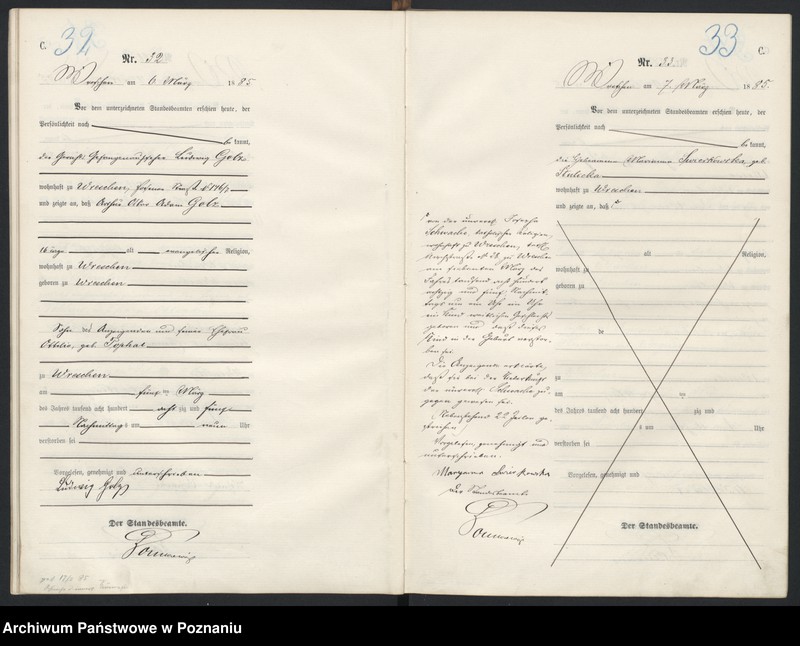 C.
32
Nr. 32
Wreschen am 6 März 1885
Vor dem unterzeichneten Standesbeamten erschien heute, der
Persönlichkeit nach
be kannt,
der Ludwig Golz
wohnhaft zu Wreschen,
und zeigte an, daß Arthur Otto Adam Golz
alt evangelischer Religion,
wohnhaft zu Wreschen
geboren zu Wreschen
Sohn des Anzeigenden und seiner Ehefrau
Ottilie, geb.
zu Wreschen
am fünf ten März
des Jahres tausend acht hundert acht zig und fünf
Nachmittags um neun Uhr
verstorben sei
Vorgelesen, genehmigt und unterschrieben
Ludwig Golz
Der Standesbeamte.
33
C.
Nr. 33
Wreschen am 7 März 1885.
Vor dem unterzeichneten Standesbeamten erschien heute, der
Persönlichkeit nach
be kannt,
die Hebamme Marianna geb.
wohnhaft zu Wreschen
und zeigte an, daß
von der unverehl.
katholischer Religion,
wohnhaft zu Wreschen,
zu Wreschen
am siebenten März des
Jahres tausend acht hundert
achtzig und fünf, Nachmit-
tags um ein Uhr ein
Kind weiblichen Geschlechts
geboren und daß dieses
Kind in der Geburt verstor-
ben sei.
Die Anzeigende erklärte,
daß sie bei der Niederkunft
der unverehl. zu-
gegen gewesen sei.
Nebenstehend 22 Zeilen ge-
strichen.
Vorgelesen, genehmigt und
unterschrieben.
Maryanna
Der Standesbeamte
alt Religion,
wohnhaft zu
geboren zu
de
zu
am ten
des Jahres tausend acht hundert zig und
s um Uhr
verstorben sei
Vorgelesen, genehmigt und
Der Standesbeamte.
Archiwum Państwowe w Poznaniu